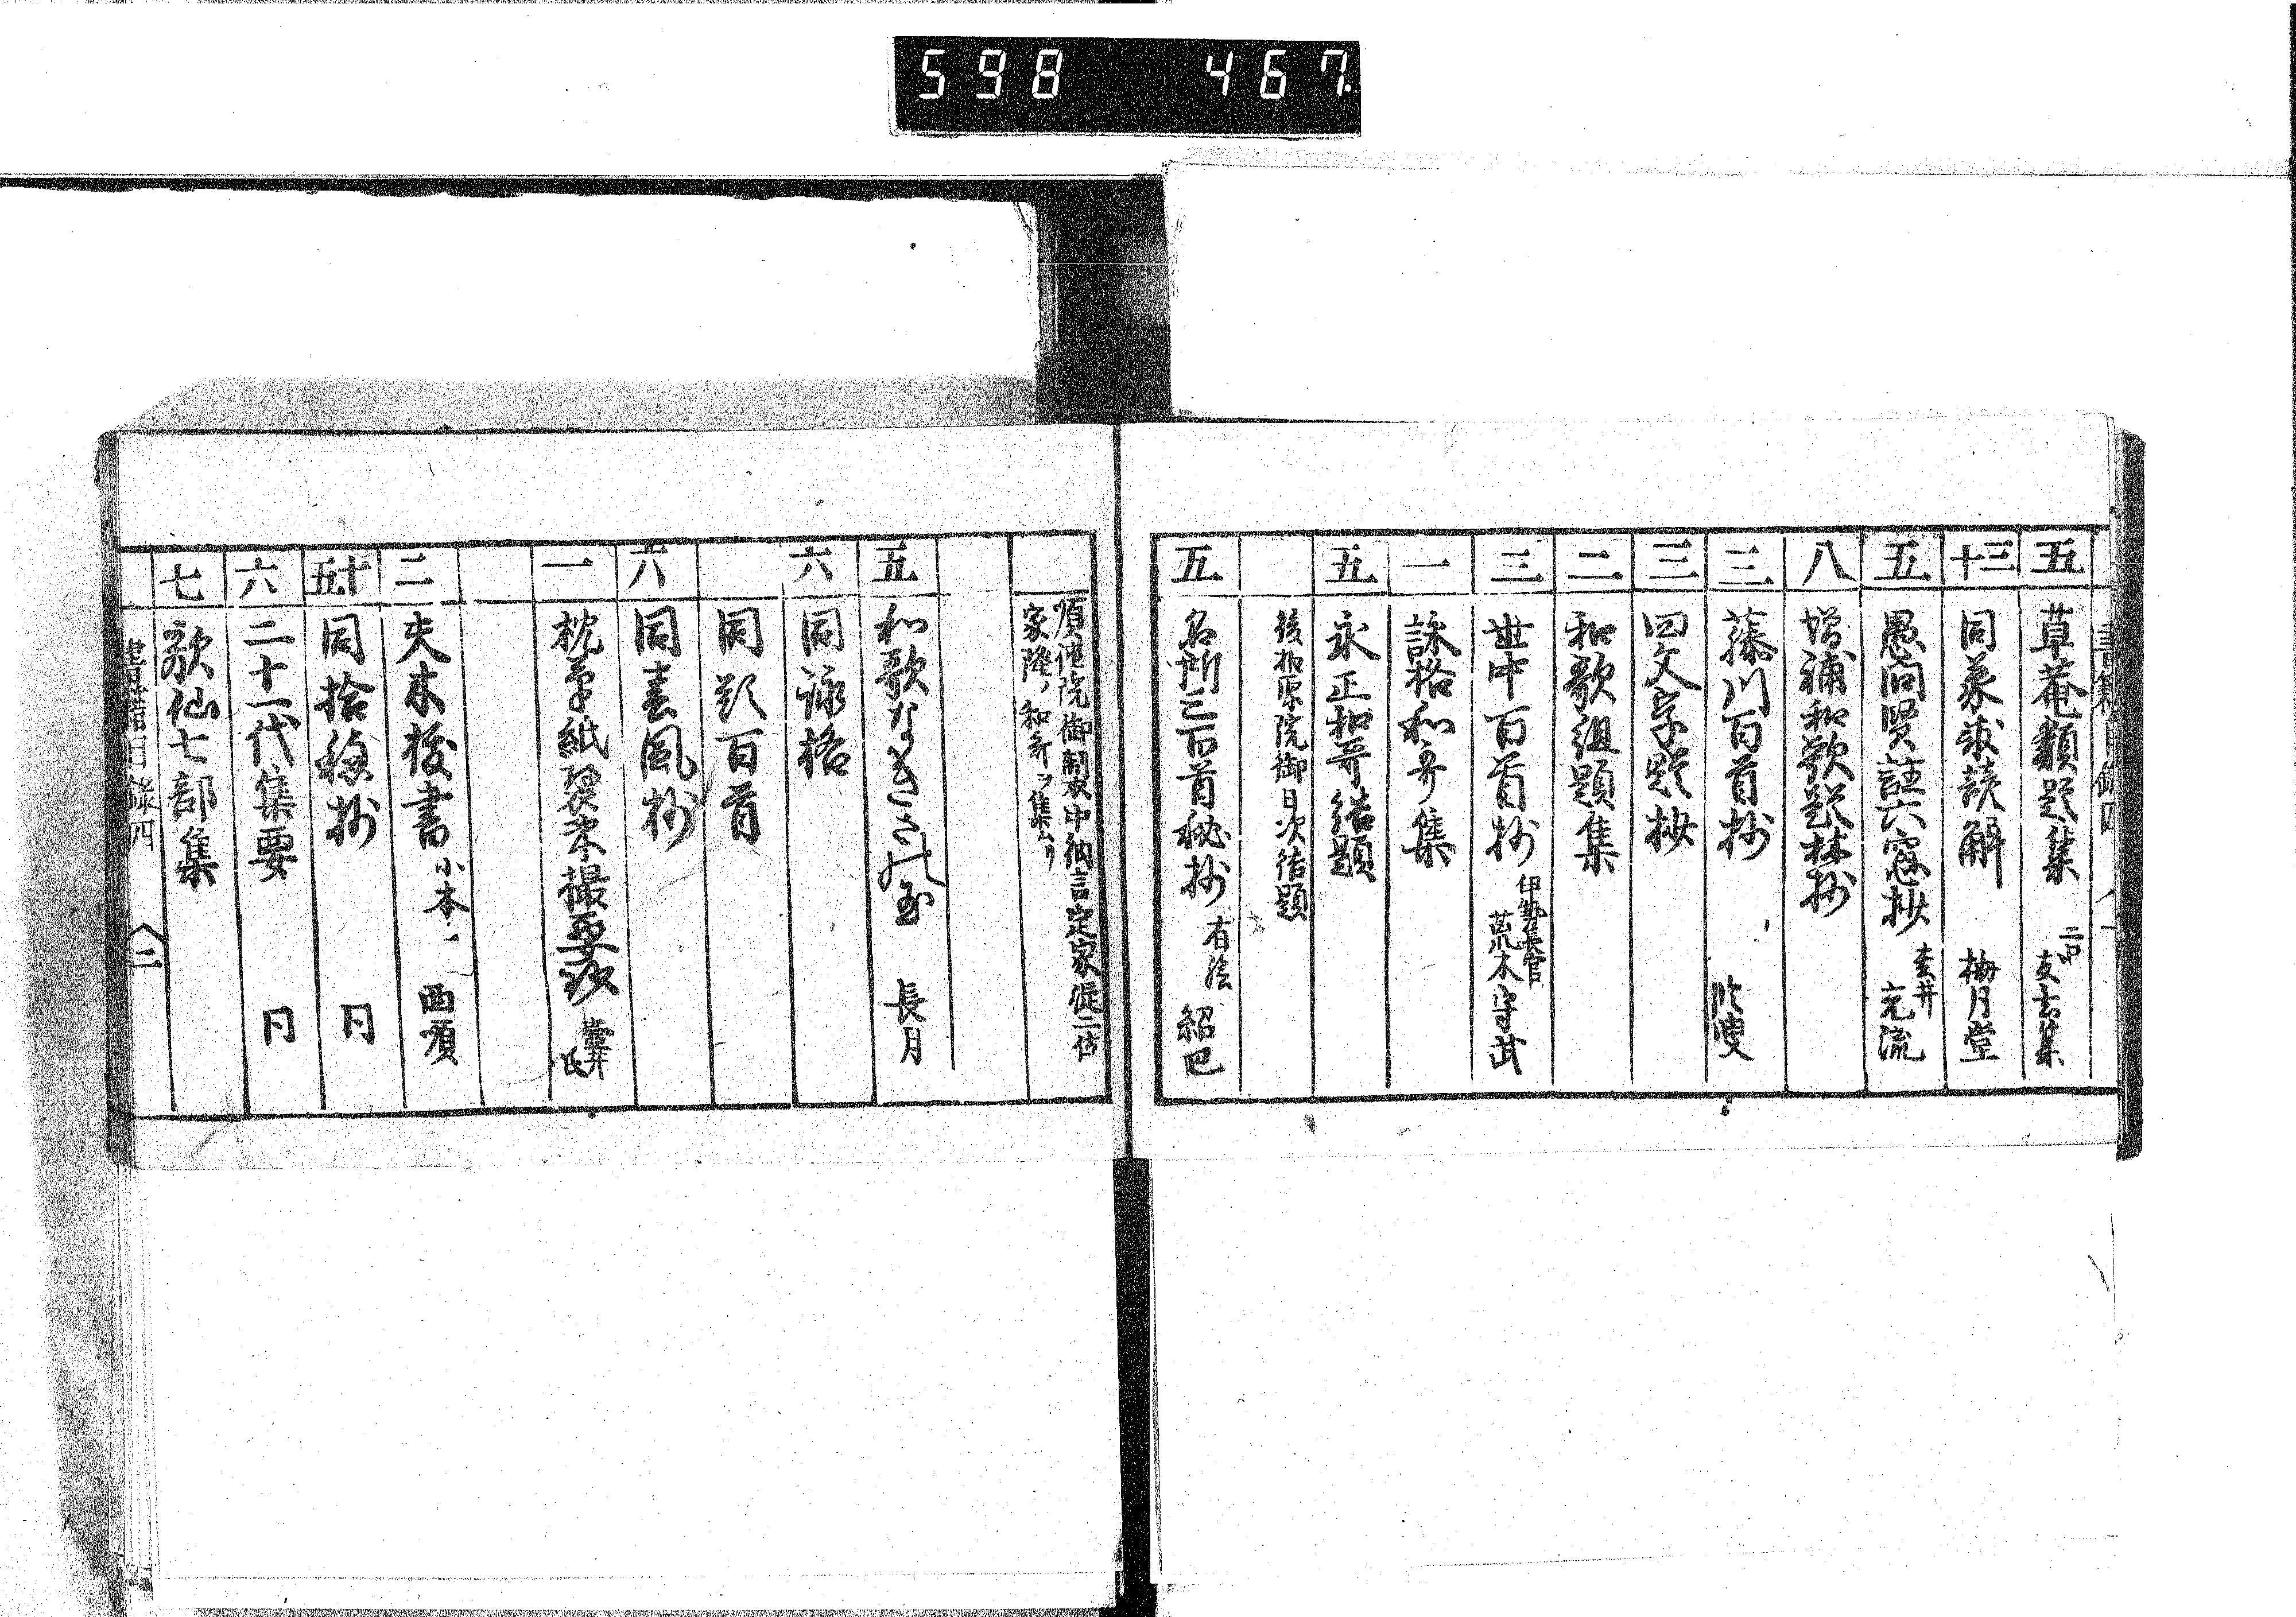 598 467
五 草菴類題集
三十 同蒙求諺解 梅月堂
五 愚問賢註六窓抄 元流
八 増補和歌題林抄
三 藤川百首抄
三 四文字題抄
二 和歌組題集
三 世中百首抄 伊勢長官 荒木守武
一 詠格和哥集
五 永正和哥結題
後柏原院御日次結題
五 名所三百首秘抄 紹巴
順徳院御製中納言定家従二位
家隆ノ和哥ヲ集ムリ
五 和歌なきさの玉 長月
六 同詠格
同題百首
六 同春風抄
一 枕草紙装束撮要抄 壷井氏
二 夫木抜書 小本 西順
十五 同拾穂抄 同
六 二十一代集要 同
七 歌仙七部集
書籍目録四 二